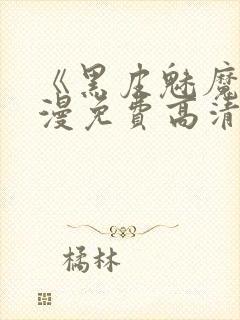 《黑皮魅魔
漫免费高清
橘林